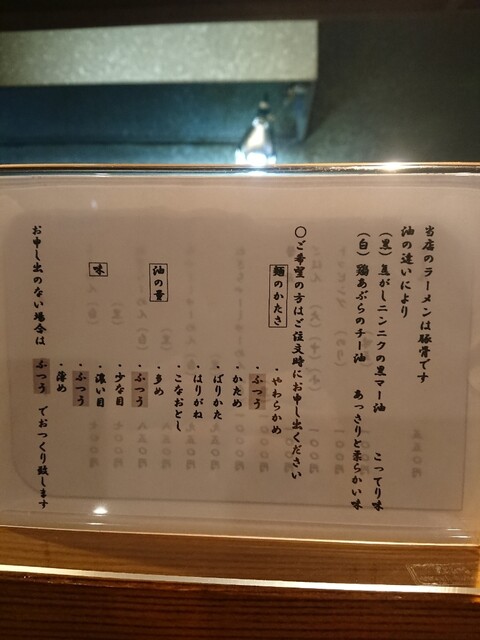 当店のラーメンは豚骨です
油の違いにより
(黒)焦がしニンニクの黒マー油 こってり味
(白)鶏あぶらのチー油 あっさりと柔らかい味
〇ご希望の方はご注文時にお申し出ください
麺のかたさ
・やわらかめ
・ふつう
・かため
・ばりかた
・はりがね
・こなおとし
油の量
・多め
・ふつう
・少な目
味
・濃い目
・ふつう
・薄め
お申し出のない場合は ふつう でおつくり致します